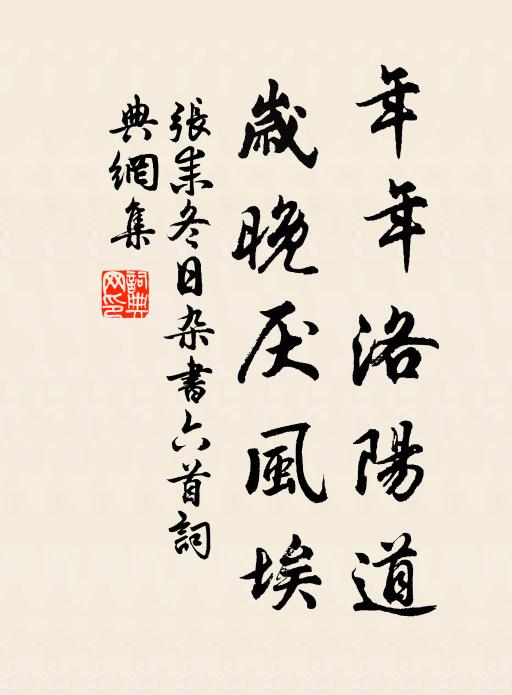 年年洛陽道
歲晚厌風埃
張耒冬日杂書六首詞
典網集
詞典
网印